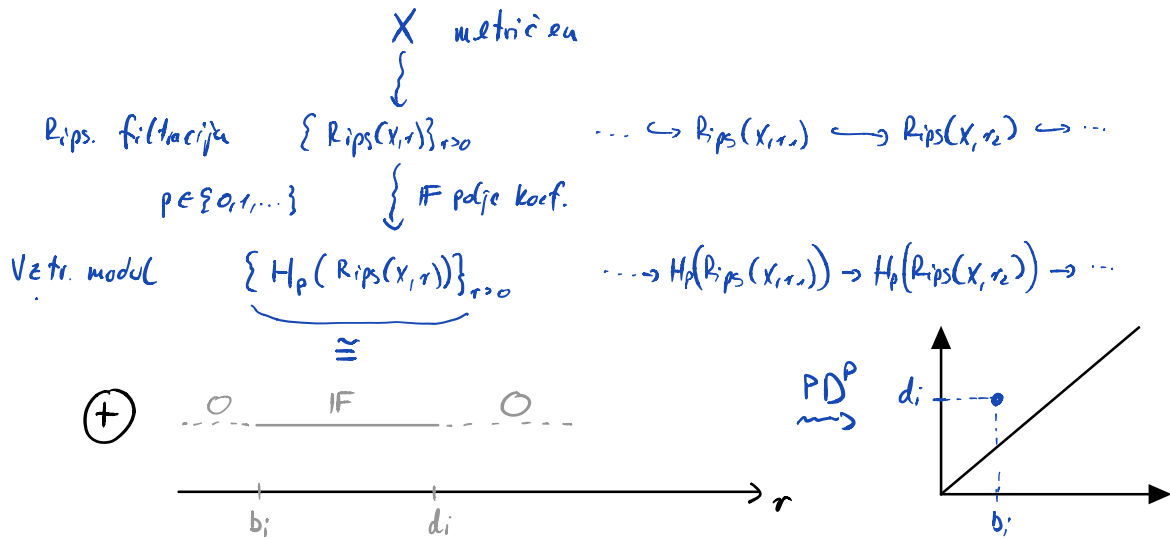 X metričen
Rips. filtracija { Rips(X,r)}_{r>0} ... ↪ Rips(X,r₁) ↪ Rips(X,r₂) ↪ ...
p∈{0,1,...} 𝔽 polje koef.
Vztr. modul { H_p(Rips(X,r))}_{r>0} ... → H_p(Rips(X,r₁)) → H_p(Rips(X,r₂)) → ...
≅
⊕ 0 𝔽 0 PD^p d_i
r
b_i d_i b_i